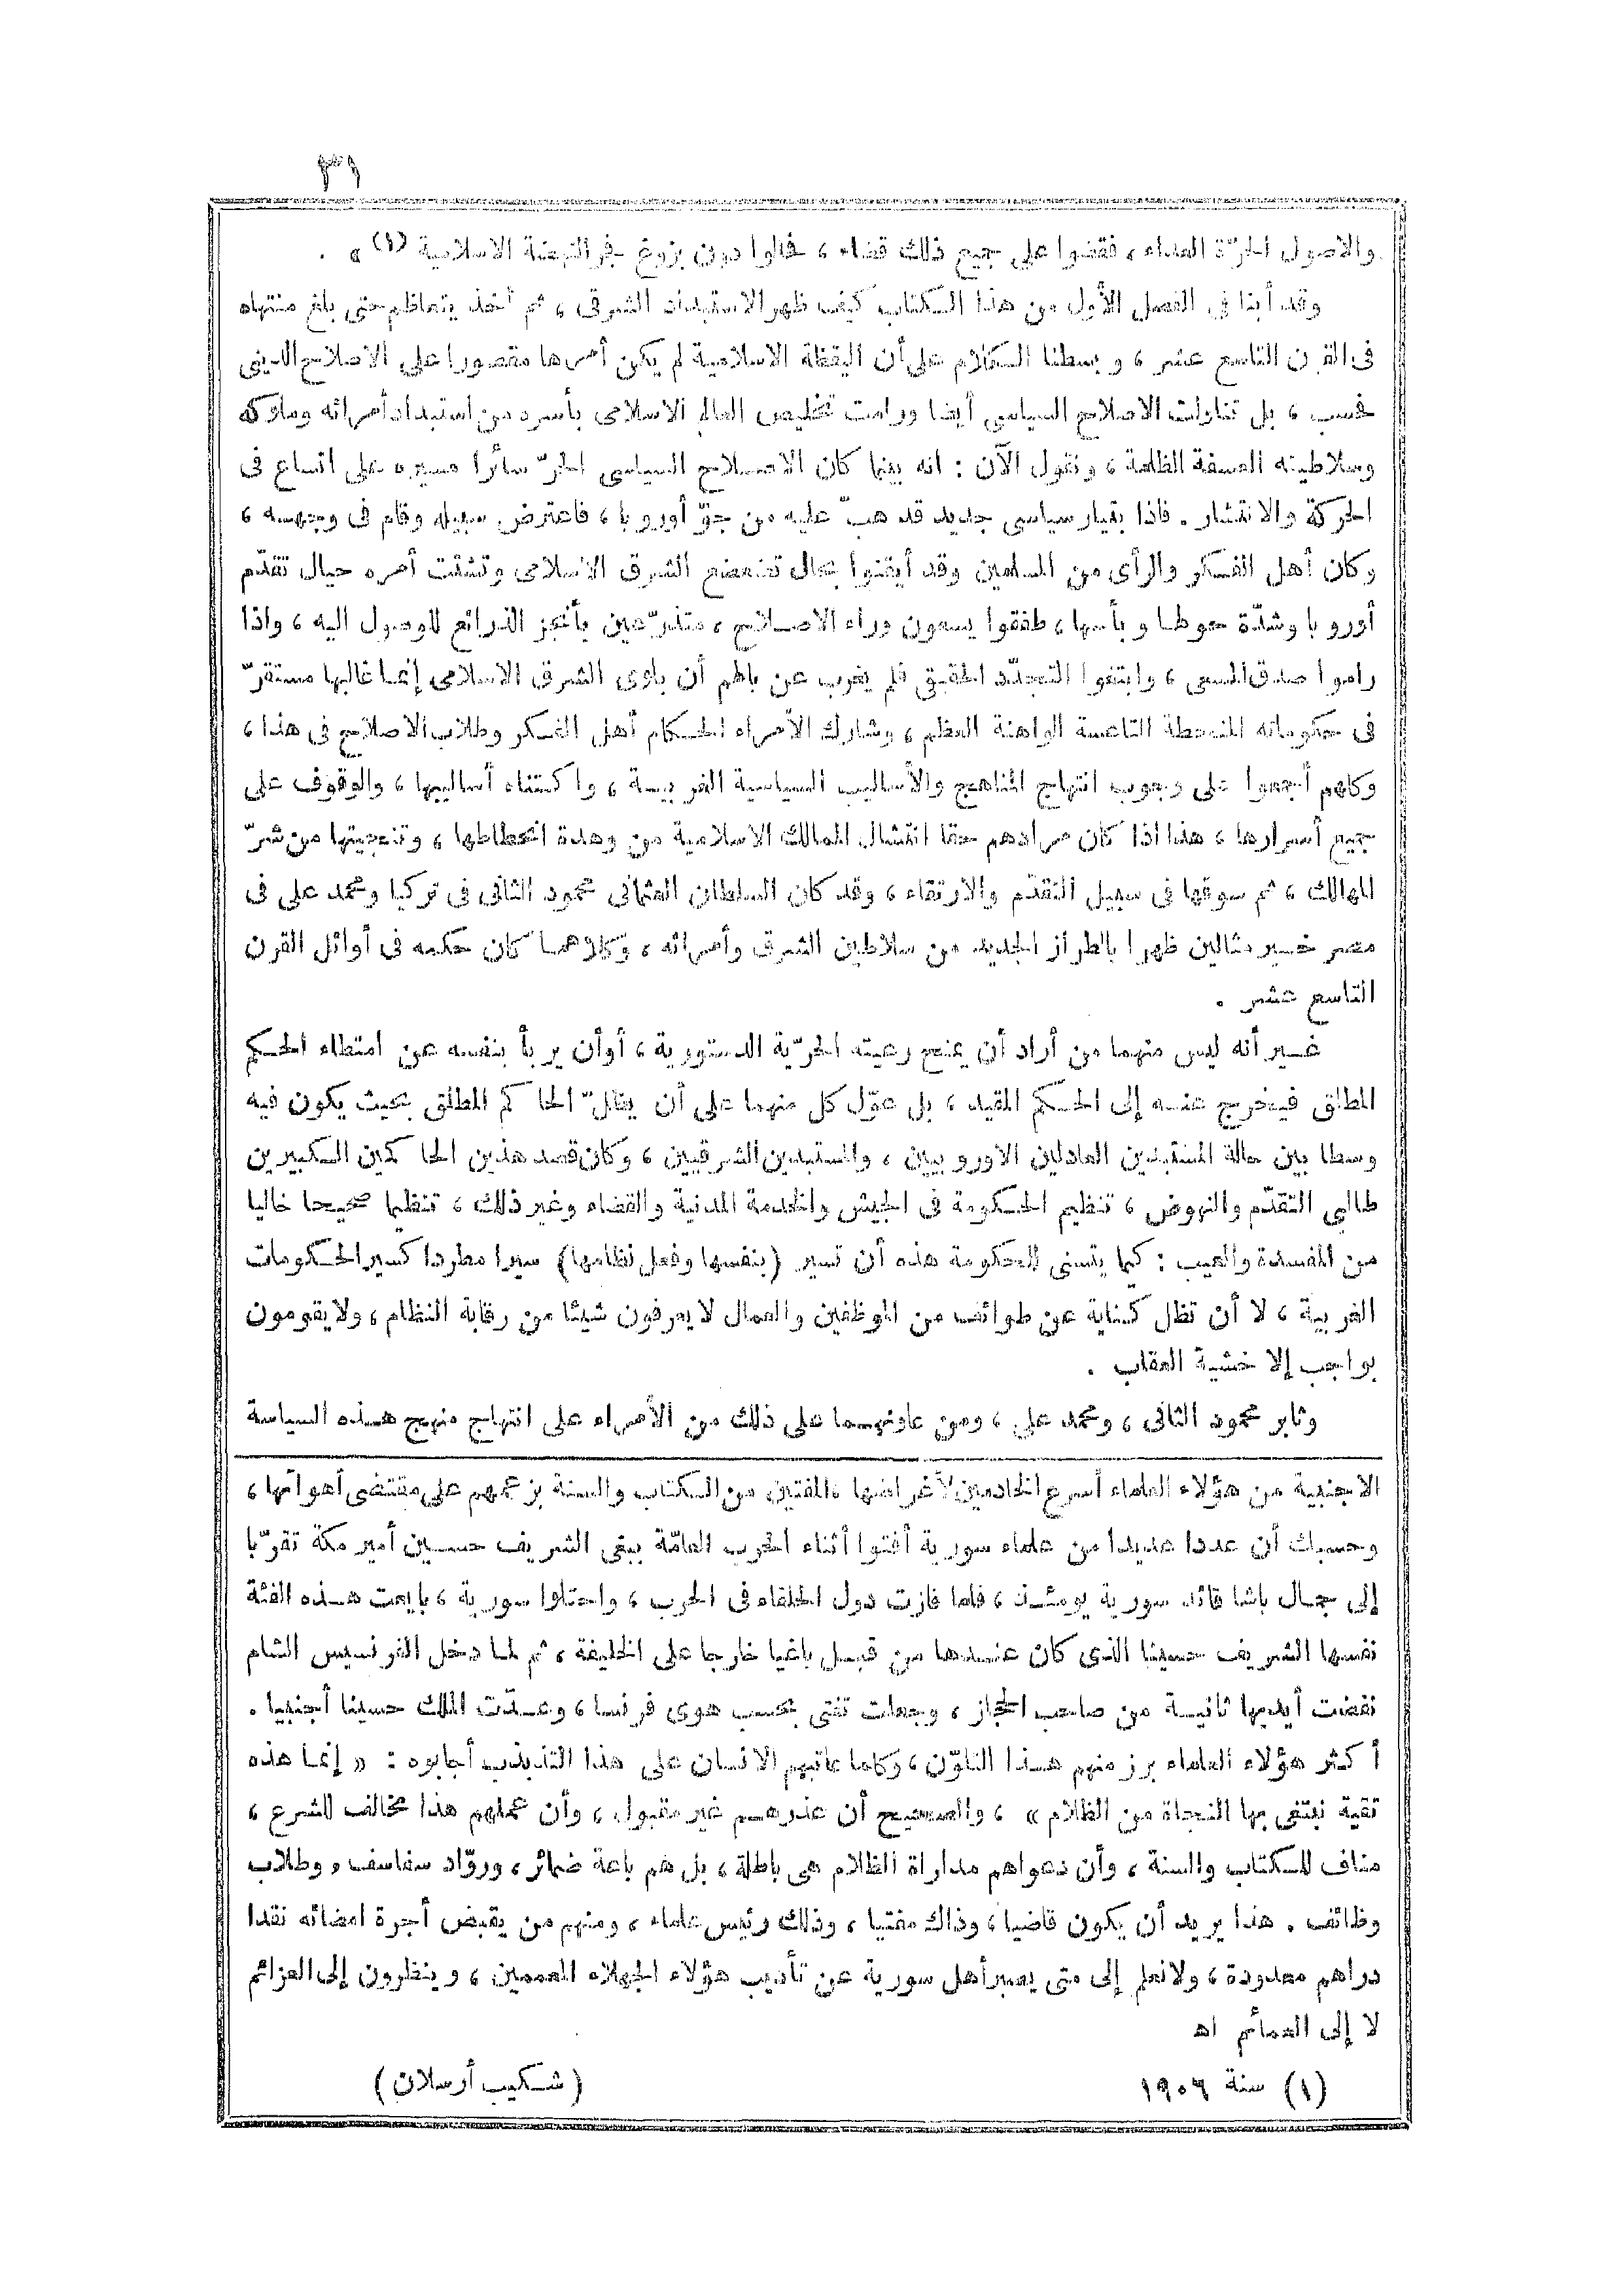 ٣٦
والاصول الحرّة العداء ، فقضوا على جميع ذلك قضاء ، فحالوا دون بزوغ فجر النهضة الاسلامية (١) » .
وقد أبنا فى الفصل الأول من هذا الكتاب كيف ظهر الاستبداد الشرقى ، ثم أخذ يتعاظم حتى بلغ منتهاه
فى القرن التاسع عشر ، وبسطنا الكلام على أن اليقظة الاسلامية لم يكن أمرها مقصورا على الاصلاح الدينى
فحسب ، بل تناولت الاصلاح السياسى أيضا ورامت تخليص العالم الاسلامى بأسره من استبداد أمرائه وملوكه
وسلاطينه العسفة الظلمة ، ونقول الآن : انه بينما كان الاصلاح السياسى الحرّ سائرا مسيره على اتساع فى
الحركة والانتشار . فاذا بتيار سياسى جديد قد هبّ عليه من جوّ أوروبا ، فاعترض سبيله وقام فى وجهه ،
وكان أهل الفكر والرأى من المسلمين وقد أيقنوا بحال تضعضع الشرق الاسلامى وتشتت أمره حيال تقدّم
أوروبا وشدّة حولها وبأسها ، طفقوا يسعون وراء الاصلاح ، متذرّعين بأنجز الذرائع للوصول اليه ، واذا
راموا صدق المسعى ، وابتغوا التجدّد الحقيقى فلم يغرب عن بالهم أن بلوى الشرق الاسلامى إنما غالبها مستقرّ
فى حكوماته المنحطة التاعسة الواهنة العظم ، وشارك الأمراء الحكام أهل الفكر وطلاب الاصلاح فى هذا ،
وكلهم أجمعوا على وجوب انتهاج المناهج والأساليب السياسية الغربية ، واكتناه أساليبها ، والوقوف على
جميع أسرارها ، هذا اذا كان مرادهم حقا انتشال الممالك الاسلامية من وهدة انحطاطها ، وتنجيتها من شرّ
المهالك ، ثم سوقها فى سبيل التقدّم والارتقاء ، وقد كان السلطان العثمانى محمود الثانى فى تركيا ومحمد على فى
مصر خير مثالين ظهرا بالطراز الجديد من سلاطين الشرق وأمرائه ، وكلاهما كان حكمه فى أوائل القرن
التاسع عشر .
غير أنه ليس منهما من أراد أن يمنح رعيته الحرّية الدستورية ، أوأن يربأ بنفسه عن امتطاء الحكم
المطلق فيخرج عنه إلى الحكم المقيد ، بل عوّل كل منهما على أن يظلّ الحاكم المطلق بحيث يكون فيه
وسطا بين حالة المستبدين العادلين الاوروبيين ، والمستبدين الشرقيين ، وكان قصد هذين الحاكمين الكبيرين
طالبى التقدّم والنهوض ، تنظيم الحكومة فى الجيش والخدمة المدنية والقضاء وغير ذلك ، تنظيما صحيحا خاليا
من المفسدة والعيب : كيما يتسنى للحكومة هذه أن تسير (بنفسها وفعل نظامها) سيرا مطردا كسير الحكومات
الغربية ، لا أن تظل كناية عن طوائف من الموظفين والعمال لا يعرفون شيئا من رقابة النظام ، ولا يقومون
بواجب إلا خشية العقاب .
وثابر محمود الثانى ، ومحمد على ، ومن عاونهما على ذلك من الأمراء على انتهاج منهج هذه السياسة
الاجنبية من هؤلاء العلماء أسرع الخادمين لأغراضها ، المفتين من الكتاب والسنة بزعمهم على مقتضى أهوائها ،
وحسبك أن عددا عديدا من علماء سورية أفتوا أثناء الحرب العامّة ببغى الشريف حسين أمير مكة تقرّبا
إلى جمال باشا قائد سورية يومئذ ، فلما فازت دول الحلفاء فى الحرب ، واحتلوا سورية ، بايعت هذه الفئة
نفسها الشريف حسينا الذى كان عندها من قبل باغيا خارجا على الخليفة ، ثم لما دخل الفرنسيس الشام
نفضت أيديها ثانية من صاحب الحجاز ، وجعلت تفتى بحسب هوى فرنسا ، وعدّت الملك حسينا أجنبيا .
أكثر هؤلاء العلماء برز منهم هذا التلوّن ، وكلما عاتبهم الانسان على هذا التذبذب أجابوه : « إنما هذه
تقية نبتغى بها النجاة من الظلام » ، والصحيح أن عذرهم غير مقبول ، وأن عملهم هذا مخالف للشرع ،
مناف للكتاب والسنة ، وأن دعواهم مداراة الظلام هى باطلة ، بل هم باعة ضمائر ، وروّاد سفاسف ، وطلاب
وظائف . هذا يريد أن يكون قاضيا ، وذاك مفتيا ، وذلك رئيس علماء ، ومنهم من يقبض أجرة امضائه نقدا
دراهم معدودة ، ولا نعلم إلى متى يصبر أهل سورية عن تأديب هؤلاء الجهلاء المعممين ، وينظرون إلى العزائم
لا إلى العمائم اه
(شكيب أرسلان)
(١) سنة ١٩٠٦